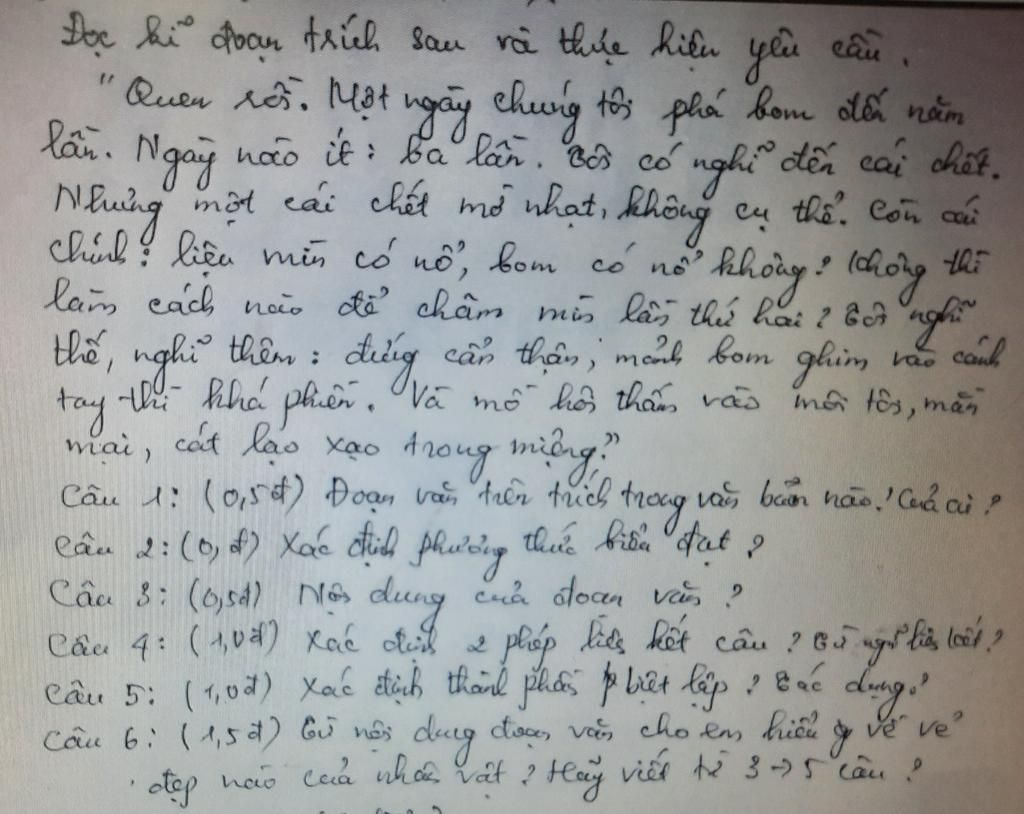 Đọc kĩ đoạn trích sau và thực hiện yêu cầu.
"Quen rồi. Một ngày chúng tôi phá bom đến năm
lần. Ngày nào ít: ba lần. Tôi có nghĩ đến cái chết.
Nhưng một cái chết mờ nhạt, không cụ thể. Còn cái
chính: liệu mìn có nổ, bom có nổ không? Không thì
làm cách nào để châm mìn lần thứ hai? Tôi nghĩ
thế, nghĩ thêm: đứng cẩn thận, mảnh bom ghim vào cánh
tay thì khá phiền. Và mồ hôi thấm vào môi tôi, mằn
mại, cát lạo xạo trong miệng."
Câu 1: (0,5đ) Đoạn văn trên trích trong văn bản nào? Của ai?
Câu 2: (0,đ) Xác định phương thức biểu đạt?
Câu 3: (0,5đ) Nội dung của đoạn văn?
Câu 4: (1,0đ) Xác định 2 phép liên kết câu? Từ ngữ liên kết?
Câu 5: (1,0đ) Xác định thành phần biệt lập? Tác dụng?
Câu 6: (1,5đ) Từ nội dung đoạn văn cho em hiểu gì về vẻ
đẹp nào của nhân vật? Hãy viết từ 3 → 5 câu?